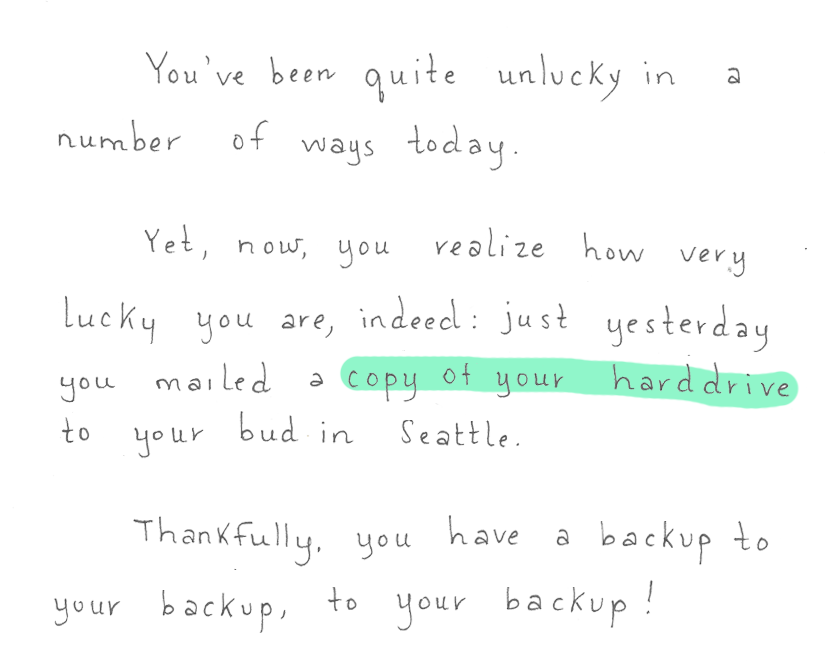 You've been quite unlucky in a
number of ways today.
Yet, now, you realize how very
lucky you are, indeed: just yesterday
you mailed a copy of your harddrive
to your bud in Seattle.
Thankfully, you have a backup to
your backup, to your backup!